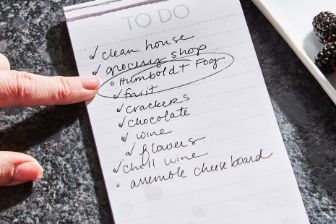 TO DO
✓ clean house
✓ grocery shop
• Humboldt Fog
✓ fruit
✓ crackers
✓ chocolate
✓ wine
✓ flowers
✓ chill wine
• assemble cheeseboard